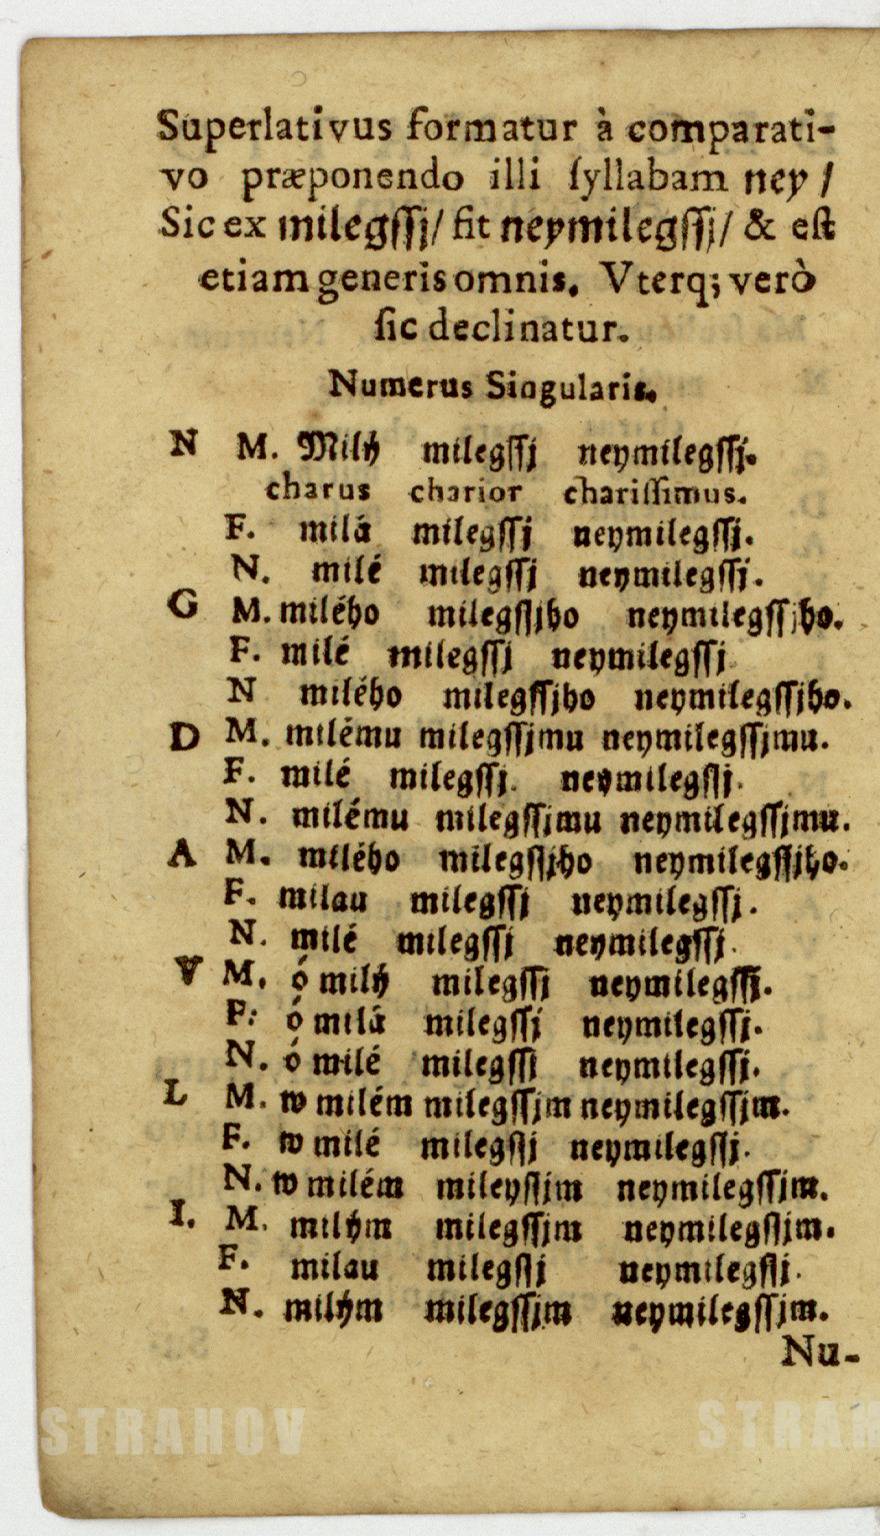 Superlativus formatur à comparati-
vo præponendo illi ſyllabam ney /
Sic ex milegſſj/ fit neymilegſſj/ & eſt
etiam generis omnis. Vterq; verò
ſic declinatur.
Numerus Singularis.
N M. Milý milegſſj neymilegſſj.
charus charior chariſſimus.
F. milá milegſſj neymilegſſj.
N. milé milegſſj neymilegſſj.
G M. milého milegſſjho neymilegſſjho.
F. milé milegſſj neymilegſſj
N milého milegſſjho neymilegſſjho.
D M. milému milegſſjmu neymilegſſjmu.
F. milé milegſſj. neymilegſſj.
N. milému milegſſjmu neymilegſſjmu.
A M. milého milegſſjho neymilegſſjho.
F. milau milegſſj neymilegſſj.
N. milé milegſſj neymilegſſj.
V M. ó milý milegſſj neymilegſſj.
F. ó milá milegſſj neymilegſſj.
N. ó milé milegſſj neymilegſſj.
L M. w milém milegſſjm neymilegſſjm.
F. w milé milegſſj neymilegſſj.
N. w milém mileyſſjm neymilegſſjm.
I. M. milým milegſſjm neymilegſſjm.
F. milau milegſſj neymilegſſj.
N. milým milegſſjm neymilegſſjm.
Nu-
STRAHOV STRAH